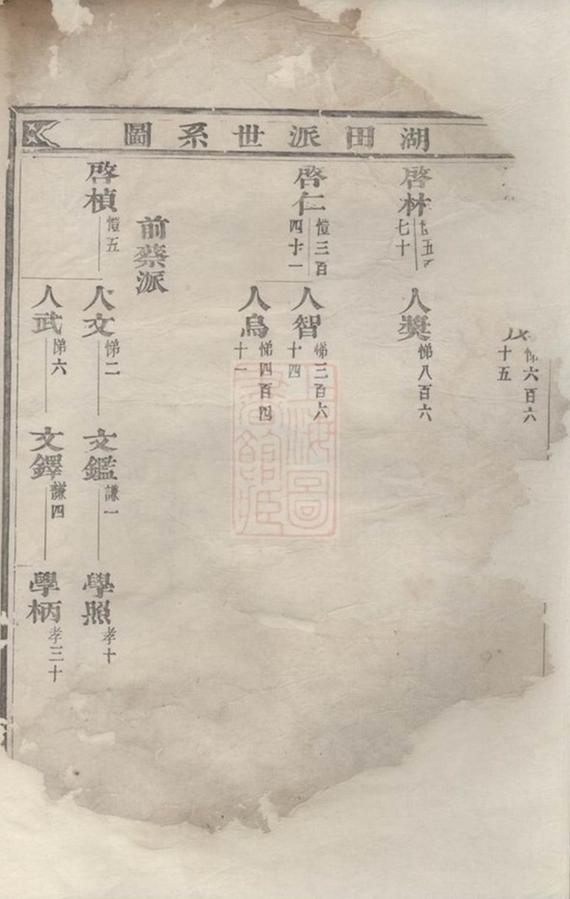 湖田派世系圖
六百六
十五
啓林
七十
人奬
悌八百六
啓仁
愷三百
四十一
人智
悌三百六
十四
人鳥
悌四百四
十一
前蔡派
啓楨
愷五
人文
悌二
文鑑
謙一
學照
孝十
人武
悌六
文鐸
謙四
學柄
孝三十
上海圖
書館藏